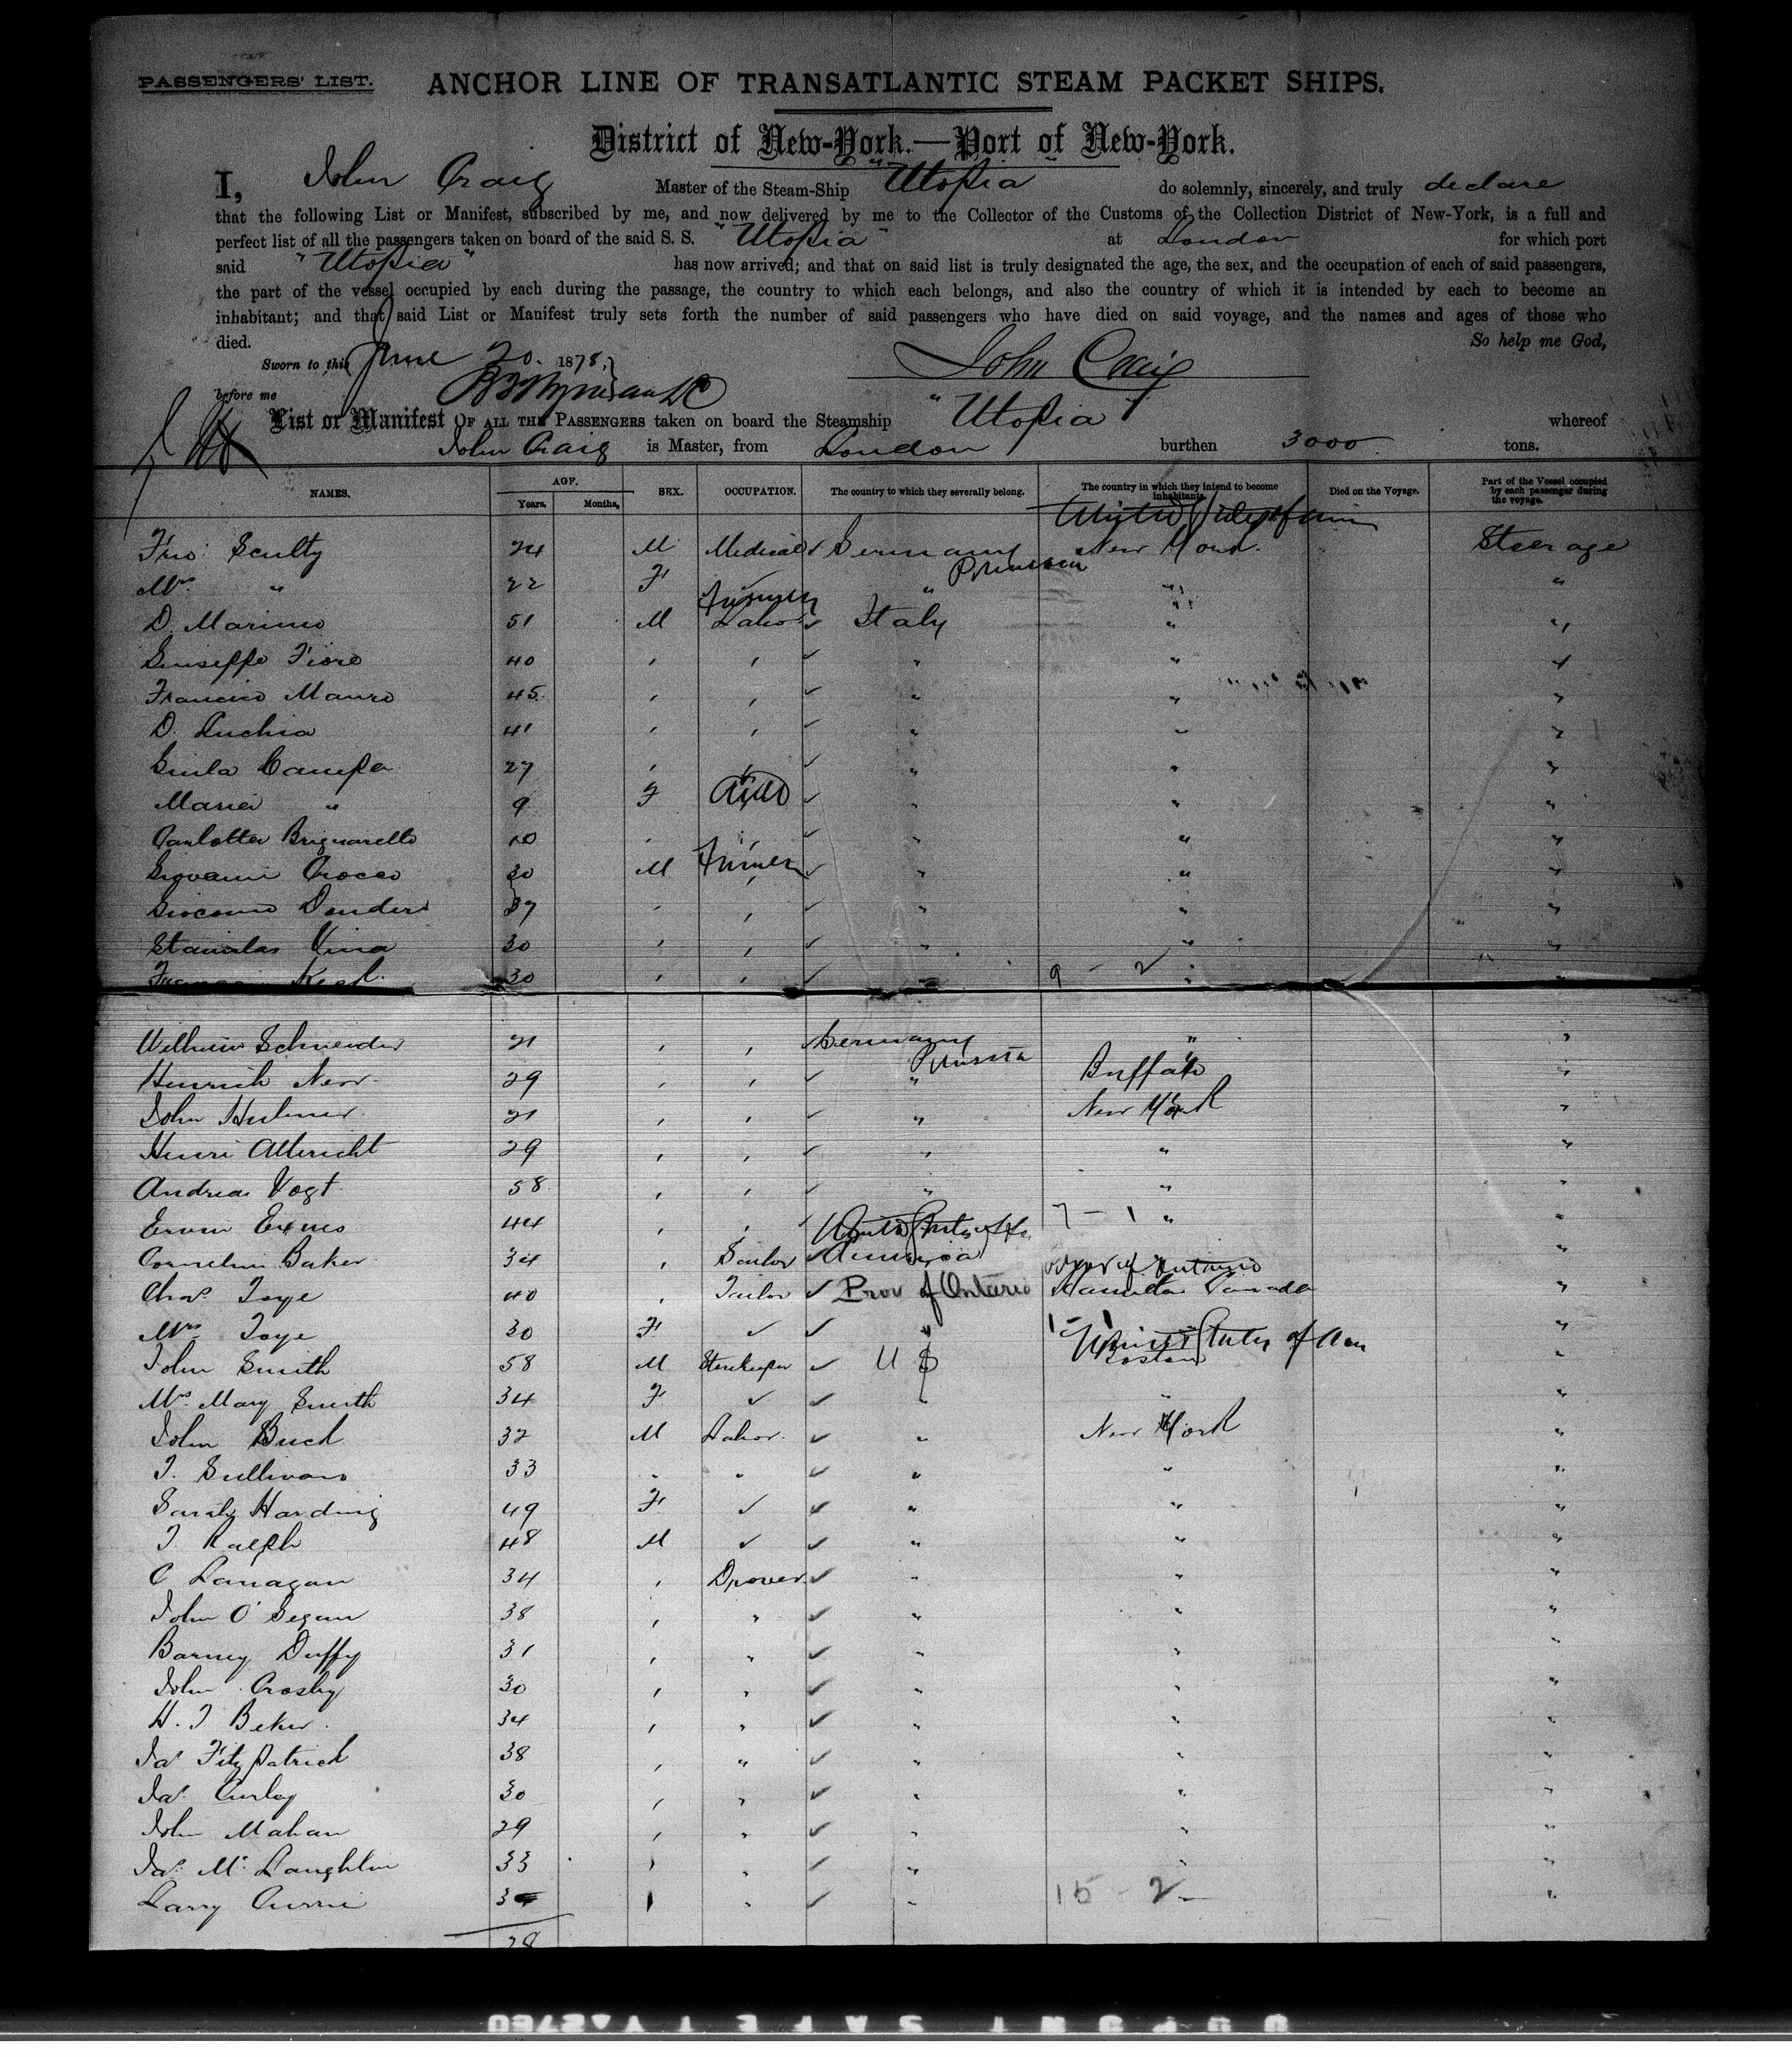 PASSENGERS' LIST. ANCHOR LINE OF TRANSATLANTIC STEAM PACKET SHIPS.
District of New-York.—Port of New-York.
I, John Craig Master of the Steam-Ship "Utopia" do solemnly, sincerely, and truly declare
that the following List or Manifest, subscribed by me, and now delivered by me to the Collector of the Customs of the Collection District of New-York, is a full and
perfect list of all the passengers taken on board of the said S. S. "Utopia" at London for which port
said "Utopia" has now arrived; and that on said list is truly designated the age, the sex, and the occupation of each of said passengers,
the part of the vessel occupied by each during the passage, the country to which each belongs, and also the country of which it is intended by each to become an
inhabitant; and that said List or Manifest truly sets forth the number of said passengers who have died on said voyage, and the names and ages of those who
died. So help me God,
Sworn to this June 20. 1878, John Craig
before me
List or Manifest OF ALL THE PASSENGERS taken on board the Steamship "Utopia" whereof
John Craig is Master, from London burthen 3000 tons.
NAMES. AGE. Years. Months. SEX. OCCUPATION. The country to which they severally belong. The country in which they intend to become inhabitants. Died on the Voyage. Part of the Vessel occupied by each passenger during the voyage.
Sculty 24 M Medical Germany New York. Steerage
Mrs " 22 F " Prussia " "
D. Marino 51 M Farmer Labor Italy " "
Giuseppe Fiore 40 " " " " "
Francisco Mauro 45 " " " " "
D. Luchia 41 " " " " "
Campa 27 " " " " "
Maria " 9 F Child " " "
Carlotta Brignarello 10 " " " " "
Giovanni Crocco 30 M Farmer " " "
Giacomo 37 " " " " "
Stanislas Vina 30 " " " " "
30 " " " 9 - 2 " "
Wilhelm Schneider 21 " " Germany " "
Heinrich 29 " " " Prussia Buffalo "
John 21 " " " New York "
Henri Albricht 29 " " " " "
Andreas Vogt 58 " " " " "
44 " " " 7 - 1 " "
Cornelius Baker 34 " Sailor America "
Chas. Toye 40 " Tailor Prov of Ontario Hamilton Canada "
Mrs Toye 30 F " 1 - 1 "
John Smith 58 M Storekeeper U S United States of Am Boston "
Mrs. Mary Smith 34 F " "
John Buck 32 M Labor. " New York "
T. Sullivan 33 " " " " "
Sarah Harding 49 F " " "
T Ralph 48 M " " "
C Lanagan 34 " Drover " " "
John O' Segan 38 " " " " "
Barney Duffy 31 " " " " "
John Crosby 30 " " " " "
H. T Beker. 34 " " " " "
Jas Fitzpatrick 38 " " " " "
Jas. Curley 30 " " " " "
John Mahan 29 " " " " "
Jas. Mc Laughlin 33 " " " " "
Larry Currie " " " 15 - 2 - "
28